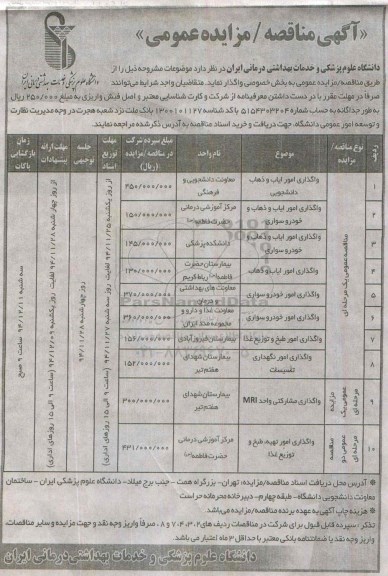 «آگهی مناقصه / مزایده عمومی»
دانشگاه علوم پزشکی و خدمات بهداشتی درمانی ایران در نظر دارد موضوعات مشروحه ذیل را از
طریق مناقصه/مزایده عمومی به بخش خصوصی واگذار نماید. متقاضیان واجد شرایط می‌توانند
صرفا در مهلت مقرر با در دست داشتن معرفینامه از شرکت و کارت شناسایی معتبر و اصل فیش واریزی به مبلغ ۲۵۰/۰۰۰ ریال
به طور جداگانه به حساب شماره
بانک ملت نزد شعبه هجرت در وجه مدیریت نظارت
و توسعه امور عمومی دانشگاه، جهت دریافت و خرید اسناد مناقصه به آدرس ذکر شده مراجعه نمایند.
ردیف
نوع مناقصه/مزایده
موضوع
نام واحد
مبلغ سپرده شرکت در مناقصه / مزایده (ریال)
مهلت توزیع اسناد
جلسه توجیهی
مهلت ارائه پیشنهادات
زمان بازگشایی پاکات
۱ واگذاری امور ایاب و ذهاب دانشجویی معاونت دانشجویی و فرهنگی ۴۵۰/۰۰۰/۰۰۰
۲ واگذاری امور ایاب و ذهاب و خودرو سواری مرکز آموزشی درمانی ۱۵۰/۰۰۰/۰۰۰
۳ واگذاری امور ایاب و ذهاب و خودرو سواری دانشکده پزشکی ۱۴۵/۰۰۰/۰۰۰
۴ واگذاری امور ایاب و ذهاب بیمارستان حضرت فاطمه(س) رباط کریم ۱۳۰/۰۰۰/۰۰۰
۵ واگذاری امور خودرو سواری معاونت های بهداشتی ۳۷۰/۰۰۰/۰۰۰
۶ واگذاری امور خودرو سواری معاونت غذا و دارو و مجموعه ستاد ایران ۳۶۰/۰۰۰/۰۰۰
۷ واگذاری امور طبخ و توزیع غذا بیمارستان فیروزآبادی ۱۵۶/۰۰۰/۰۰۰
۸ واگذاری امور نگهداری تاسیسات بیمارستان شهدای هفتم تیر ۱۵۲/۰۰۰/۰۰۰
۹ واگذاری مشارکتی واحد MRI بیمارستان شهدای هفتم تیر ۳۰۰/۰۰۰/۰۰۰
۱۰ واگذاری امور تهیه، طبخ و توزیع غذا مرکز آموزشی درمانی حضرت فاطمه(س) ۴۳۱/۰۰۰/۰۰۰
مناقصه عمومی یک مرحله ای
مزایده عمومی یک مرحله ای
مناقصه عمومی دو مرحله ای
روز چهارشنبه ۹۴/۱۱/۲۸
سه شنبه ۹۴/۱۲/۱۱ ساعت ۹ صبح
※ آدرس محل دریافت اسناد مناقصه/مزایده: تهران- بزرگراه همت - جنب برج میلاد- دانشگاه علوم پزشکی ایران - ساختمان
معاونت دانشجویی دانشگاه- طبقه چهارم- دبیرخانه محرمانه حراست
※ هزینه چاپ آگهی به عهده برنده مناقصه/مزایده می باشد.
تذکر: سپرده قابل قبول برای شرکت در مناقصات ردیف های ۲، ۳، ۴، ۷ و ۸، صرفا واریز وجه نقد و جهت مزایده و سایر مناقصات،
واریز وجه نقد یا ضمانتنامه بانکی معتبر با حداقل ۳ ماه اعتبار می باشد.
دانشگاه علوم پزشکی و خدمات بهداشتی درمانی ایران